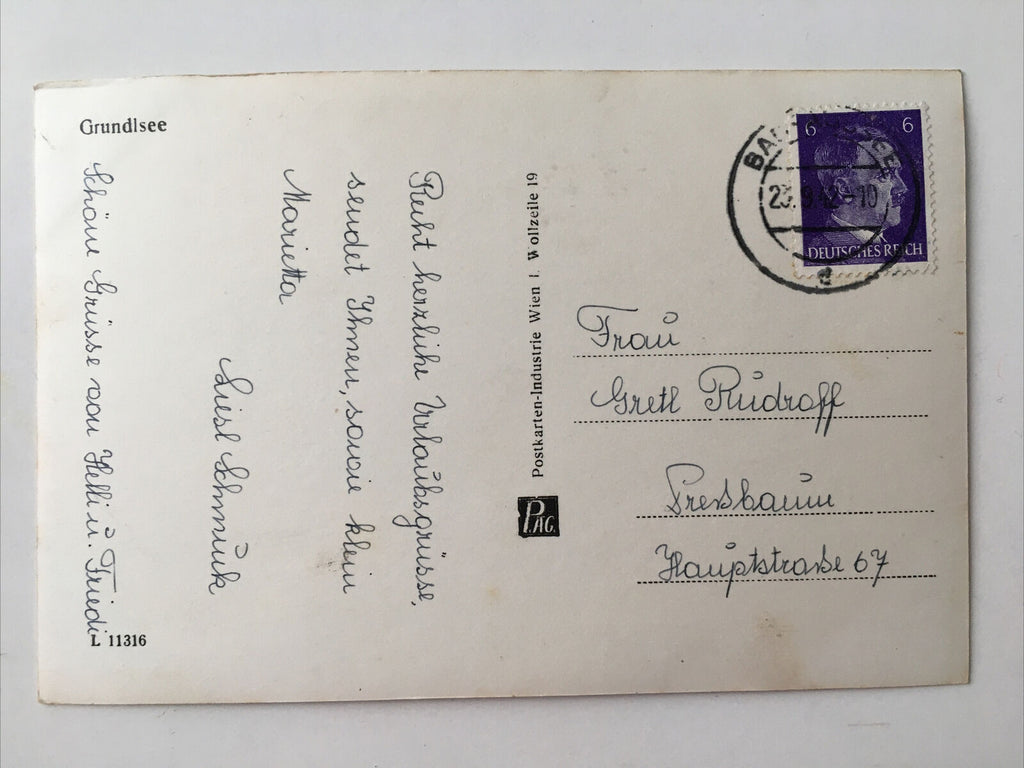 Grundlsee
Recht herzliche Urlaubsgrüsse,
sendet Ihnen, sowie klein
Marietta
Liesl Schmuck
Schöne Grüsse von Helli u. Friedi
L 11316
Postkarten-Industrie Wien I. Wollzeile 19
PAG.
6 6
DEUTSCHES REICH
23.9.42-10
d
Frau
Gretl Rudroff
Preßbaum
Hauptstraße 67